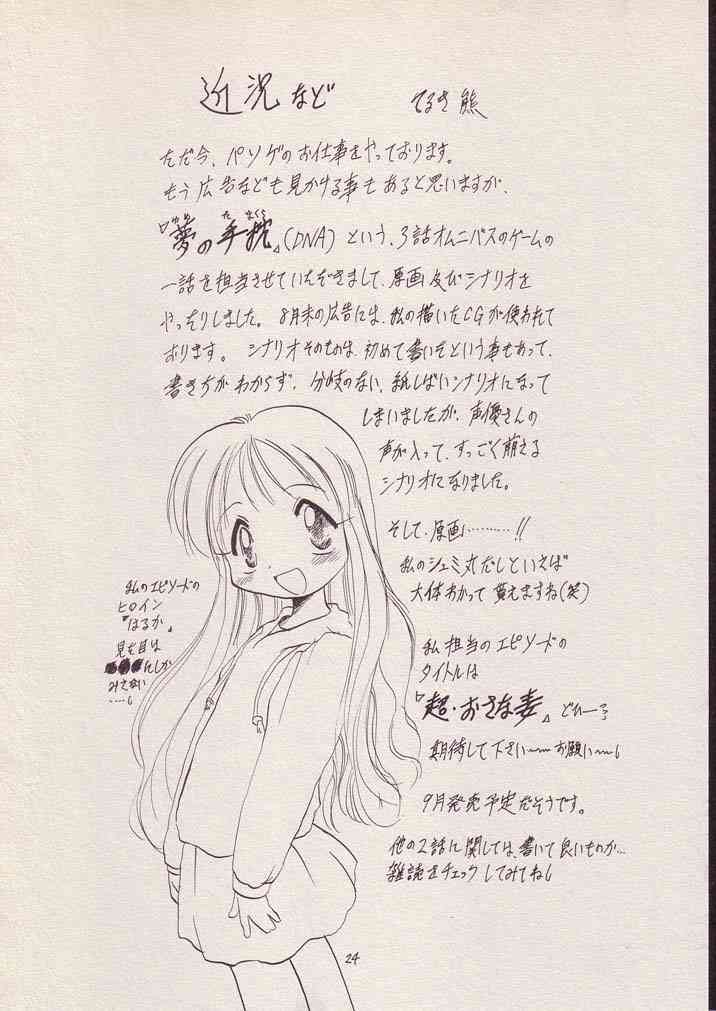 近況など
てるき熊
ただ今、パソゲのお仕事をやっております。
もう広告なども見かける事もあると思いますが、
『夢の手枕』(DNA)という、3話オムニバスのゲームの
一話を担当させていただきまして、原画及びシナリオを
やったりしました。8月末の広告には、私の描いたCGが使われて
おります。シナリオそのものは、初めて書いたという事もあって、
書き方がわからず、分岐のない、紙しばいシナリオになって
しまいましたが、声優さんの
声が入って、すっごく萌える
シナリオになりました。
そして、原画………!!
私のシュミ丸だしといえば
大体わかって貰えますね(笑)
私のエピソードの
ヒロイン
『はるか』
見た目は
にしか
みえない
……
私担当のエピソードの
タイトルは
『超・おさな妻』どひーっ
期待して下さい〜〜お願い〜
9月発売予定だそうです。
他の2話に関しては、書いて良いものか…
雑誌をチェックしてみてね
24